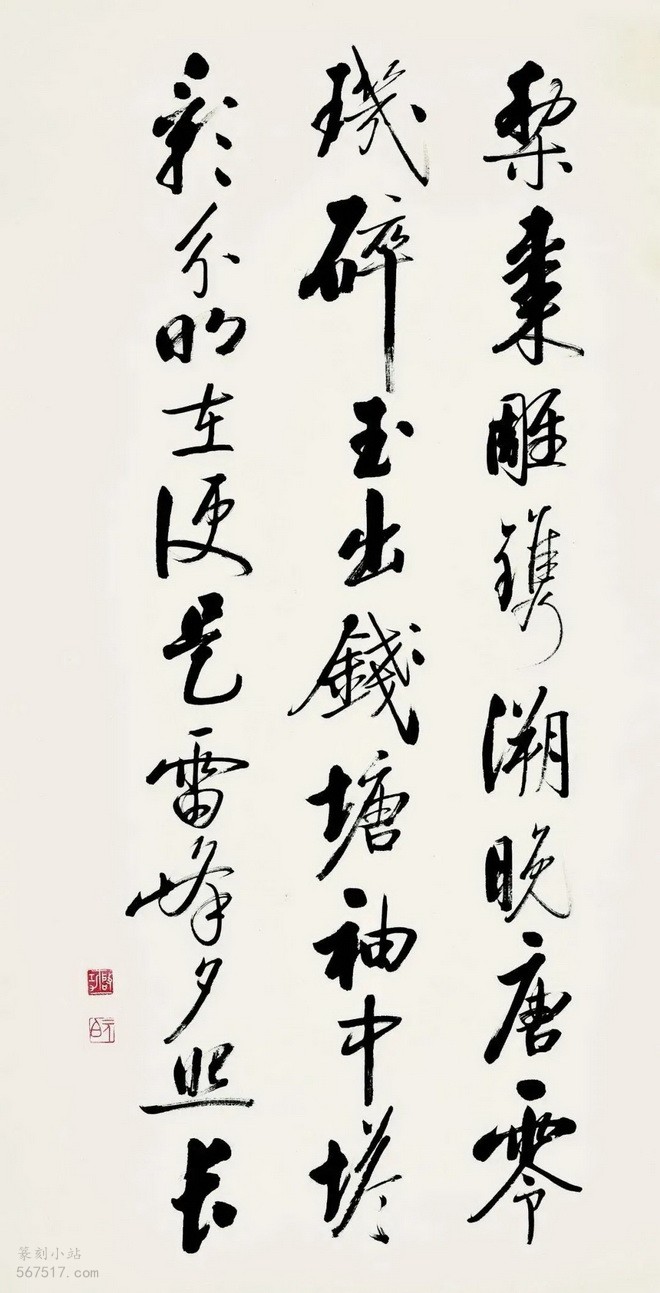 梨枣雕鎸溯晚唐零
璣碎玉出錢塘袖中
塔影分明在便是雷峰夕照长
篆刻小站
567517.com